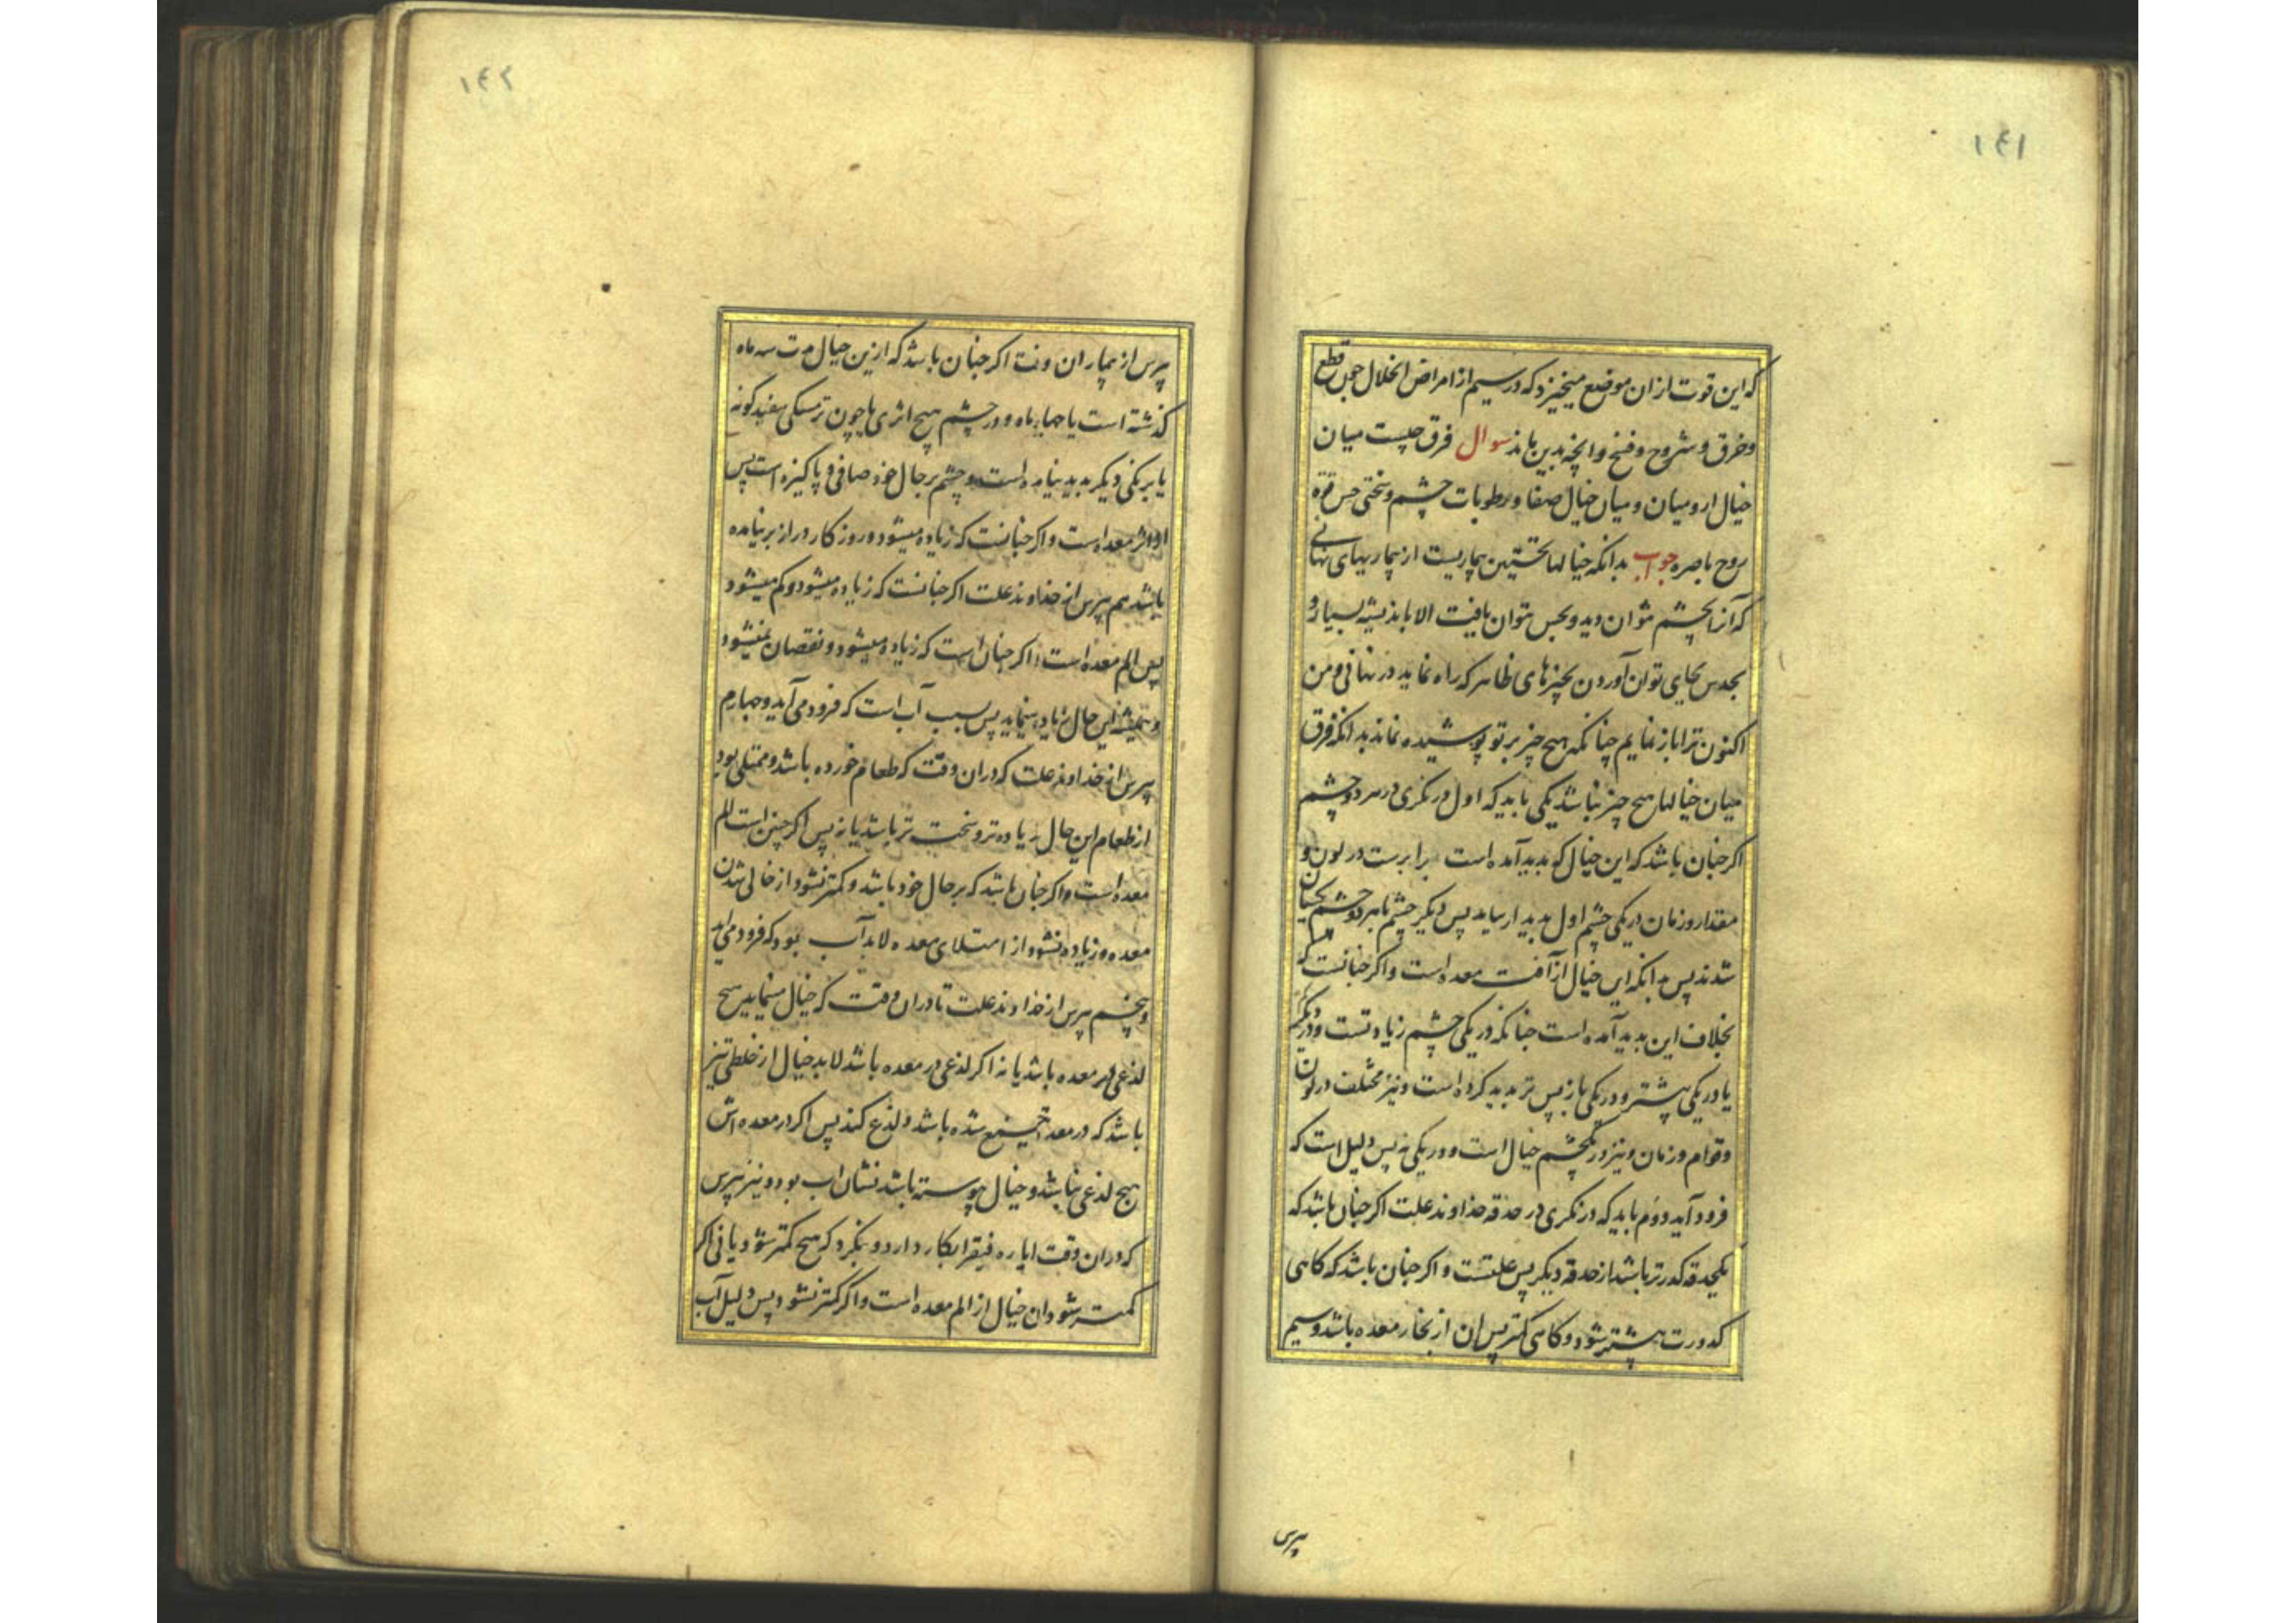 ۱۴۱
که این قوت از ان موضع میخیزد که در سیم از امراض انحلال چون قطع
و خرق و شروح و فسخ و انچه بدین ماند سوال فرق چیست میان
خیال ارو میان و میان خیال صفا و رطوبات چشم و سختی حس قوة
روح باصره جواب بدانکه خیالها نخستین بیماریست از بیماریهای نهانی
که آنرا بچشم نتوان دید و بحس نتوان یافت الا باندیشه بسیار و
بحدس بجای توان آوردن بچیزهای ظاهر که راه نماید در نهانی و من
اکنون ترا باز نمایم چنانکه هیچ چیز بر تو پوشیده نماند بدانکه فرق
میان خیالها هیچ چیز نباشد یکی باید که اول در نکری در هر دو چشم
اکر جنان باشد که این خیال که بدید آمده است برابرست در لون و
مقدار و زمان در یکی چشم اول بدید ار بیاید پس دیکر چشم تا هر دو چشم یکسان
شدند پس بدانکه این خیال از آفت معده است و اکر جنانست که
بخلاف این بدید آمده است جنانکه در یکی چشم زیادتست و در یکی کم
یا در یکی پیشتر و در یکی باز پس تر بدید کرده است و نیز مختلف در لون
و قوام و زمان و نیز در یکچشم خیال است و در یکی نه پس دلیل است که
فرود آید دوم باید که در نکری در حدقه خداوند علت اکر جنان باشد که
یکحدقه کدرتر باشد از حدقه دیکر پس علتست و اکر جنان باشد که کاهی
کدورت بیشتر شود و کاهی کمتر پس ان از بخار معده باشد و سیم
پرس
۱۴۲
پرس از بیماران ونت اکر جنان باشد که ازین خیال مدت سه ماه
کذشته است یا جهار ماه و در چشم هیچ اثری یا چون ترمسکی سفید کونه
یا برنکی دیکر بدید نیامده است و چشم بر حال خود صافی و پاکیزه است پس
از اثر معده است و اکر جنانست که زیاده میشود و روز کار دراز بر نیامده
باشد هم پرس از خداوند علت اکر جنانست که زیاده میشود و کم میشود
پس الم معده است و اکر جنان است که زیاده میشود و نقصان نمیشود
و همیشه این حال زیاده مینماید پس سبب آب است که فرود می آید و جهارم
پرس از خداوند علت که دران وقت که طعام خورده باشد و ممتلی بود
از طعام این حال زیاده تر و سخت تر باشد یا نه پس اکر چنین است الم
معده است و اکر جنان باشد که بر حال خود باشد و کمتر نشود از خالی شدن
معده و زیاده نشود از امتلای معده لابد آب بود که فرود می اید
و پنجم پرس از خداوند علت تا دران وقت که خیال مینماید هیچ
لذعی در معده باشد یا نه اکر لذعی در معده باشد لابد خیال از خلطی تیز
باشد که در معده جمع شده باشد و لذع کند پس اکر در معده اش
هیچ لذعی نباشد و خیال پیوسته باشد نشان اب بود و نیز پرس
که دران وقت ایاره فیقرا بکار دارد و بنکرد که هیچ کمتر شود یا نی اکر
کمتر شود ان خیال از الم معده است و اکر کمتر نشود پس دلیل آب